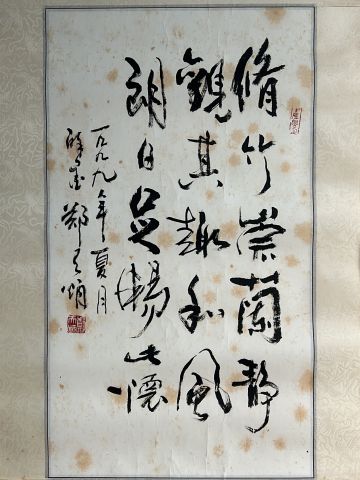 脩竹崇蘭靜
觀其趣和風
朗日足暢此懷
一九九九年夏月
鄭